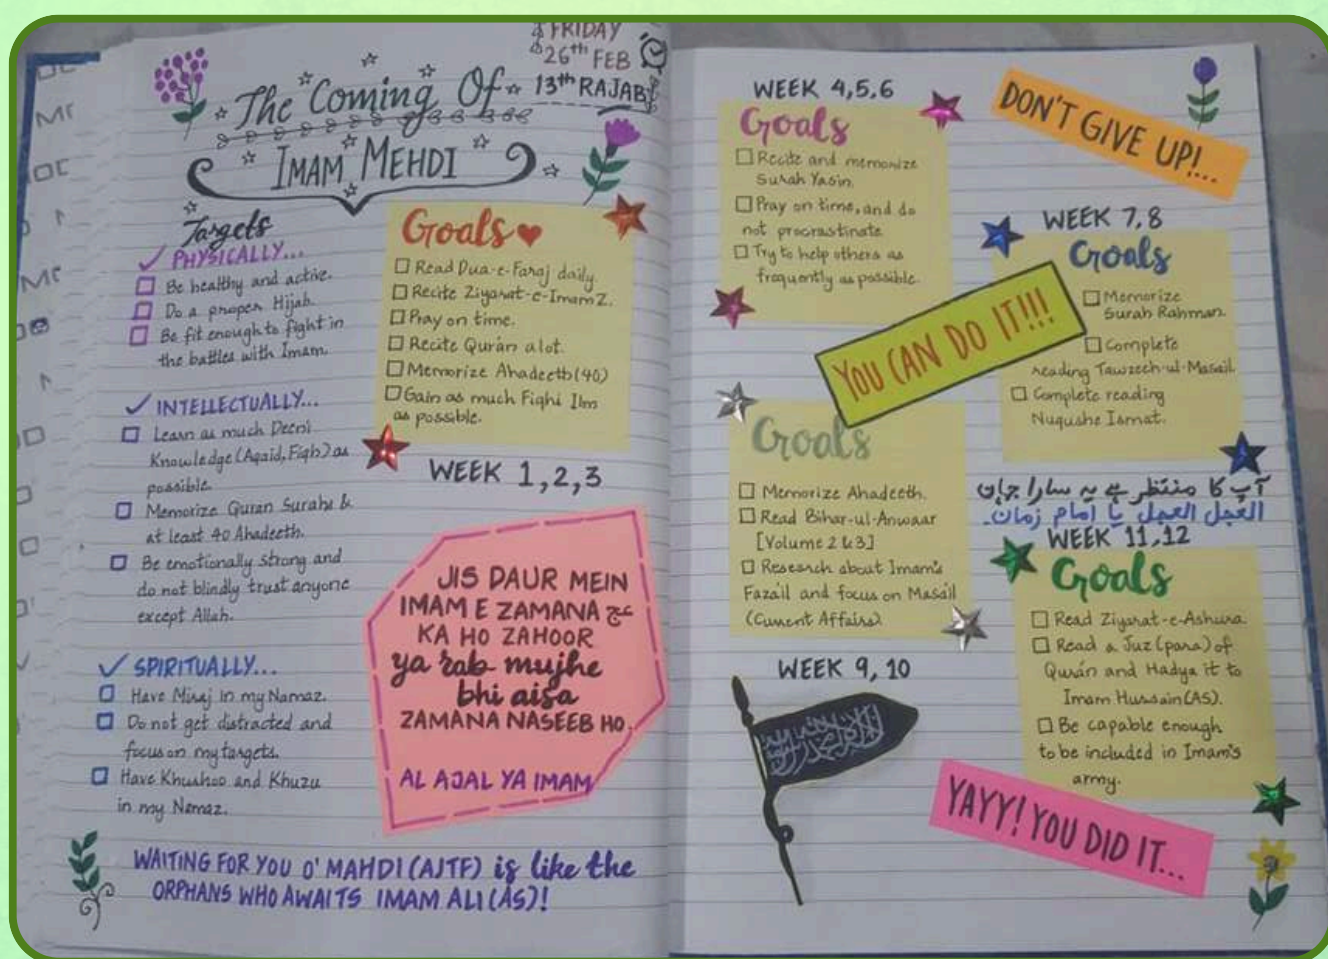 FRIDAY
26th FEB
13th RAJAB
The Coming Of
IMAM MEHDI
Targets
✓ PHYSICALLY...
☐ Be healthy and active.
☐ Do a proper Hijab.
☐ Be fit enough to fight in
the battles with Imam.
✓ INTELLECTUALLY...
☐ Learn as much Deeni
Knowledge (Aqaid, Fiqh) as
possible.
☐ Memorize Quran Surahs &
at least 40 Ahadeeth.
☐ Be emotionally strong and
do not blindly trust anyone
except Allah.
✓ SPIRITUALLY...
☐ Have Miraj in my Namaz.
☐ Do not get distracted and
focus on my targets.
☐ Have Khushoo and Khuzu
in my Namaz.
Goals ♥
☐ Read Dua-e-Faraj daily.
☐ Recite Ziyarat-e-Imam Z.
☐ Pray on time.
☐ Recite Qurán a lot.
☐ Memorize Ahadeeth (40)
☐ Gain as much Fiqhi Ilm
as possible.
WEEK 1,2,3
JIS DAUR MEIN
IMAM E ZAMANA عج
KA HO ZAHOOR
ya rab mujhe
bhi aisa
ZAMANA NASEEB HO.
AL AJAL YA IMAM
WAITING FOR YOU O' MAHDI (AJTF) is like the
ORPHANS WHO AWAITS IMAM ALI (AS)!
WEEK 4,5,6
Goals
☐ Recite and memorize
Surah Yasin.
☐ Pray on time, and do
not procrastinate
☐ Try to help others as
frequently as possible.
DON'T GIVE UP!...
WEEK 7,8
Goals
☐ Memorize
Surah Rahman.
☐ Complete
reading Tawzeeh-ul-Masail.
☐ Complete reading
Nuqushe Ismat.
YOU CAN DO IT!!!
Goals
☐ Memorize Ahadeeth.
☐ Read Bihar-ul-Anwaar
[Volume 2 & 3]
☐ Research about Imam's
Fazail and focus on Masail
(Current Affairs)
WEEK 9, 10
آپ کا منتظر ہے یہ سارا جہاں
العجل العجل یا امام زمان۔
WEEK 11,12
Goals
☐ Read Ziyarat-e-Ashura.
☐ Read a Juz (para) of
Qurán and Hadya it to
Imam Hussain (AS).
☐ Be capable enough
to be included in Imam's
army.
YAYY! YOU DID IT...